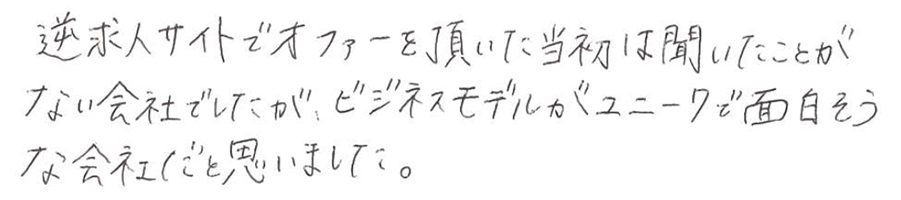 逆求人サイトでオファーを頂いた当初は聞いたことが
ない会社でしたが、ビジネスモデルがユニークで面白そう
な会社だと思いました。